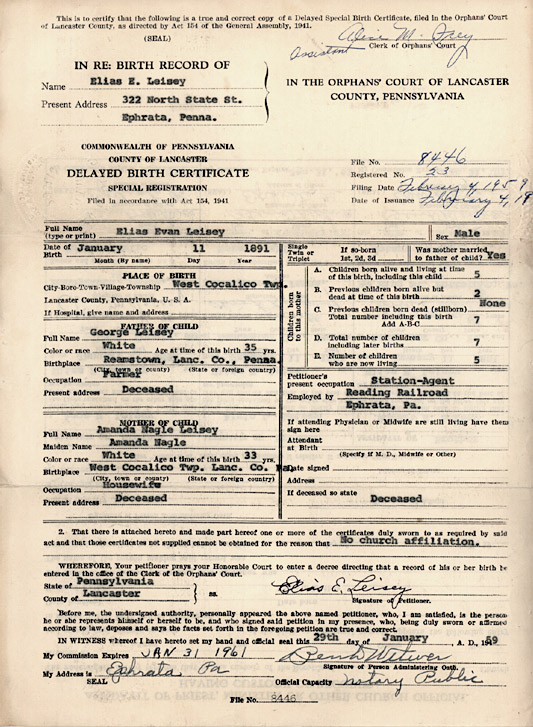 This is to certify that the following is a true and correct copy of a Delayed Special Birth Certificate, filed in the Orphans' Court
of Lancaster County, as directed by Act 154 of the General Assembly, 1941.
(SEAL)
Alice M. Frey
Assistant Clerk of Orphans' Court
IN RE: BIRTH RECORD OF
Name Elias E. Leisey
Present Address 322 North State St.
Ephrata, Penna.
IN THE ORPHANS' COURT OF LANCASTER
COUNTY, PENNSYLVANIA
COMMONWEALTH OF PENNSYLVANIA
COUNTY OF LANCASTER
DELAYED BIRTH CERTIFICATE
SPECIAL REGISTRATION
Filed in accordance with Act 154, 1941
File No. 8446
Registered No. 23
Filing Date February 4, 1959
Date of Issuance February 4, 19
Full Name (type or print) Elias Evan Leisey Sex Male
Date of Birth January 11 1891
Month (By name) Day Year
Single Twin or Triplet
If so-born 1st, 2d, 3d
Was mother married to father of child? Yes
PLACE OF BIRTH
City-Boro-Town-Village-Township West Cocalico Twp.
Lancaster County, Pennsylvania, U. S. A.
If Hospital, give name and address
FATHER OF CHILD
Full Name George Leisey
Color or race White Age at time of birth 35 yrs.
Birthplace Reamstown, Lanc. Co., Penna.
(City, town or county) (State or foreign country)
Occupation Farmer
Present address Deceased
MOTHER OF CHILD
Full Name Amanda Nagle Leisey
Maiden Name Amanda Nagle
Color or race White Age at time of birth 33 yrs.
Birthplace West Cocalico Twp. Lanc. Co.
(City, town or county) (State or foreign country)
Occupation Housewife
Present address Deceased
Children born to this mother
A. Children born alive and living at time of this birth, including this child 5
B. Previous children born alive but dead at time of this birth 2
C. Previous children born dead (stillborn) None
Total number including this birth Add A-B-C 7
D. Total number of children including later births 7
E. Number of children who are now living 5
Petitioner's present occupation Station-Agent
Employed by Reading Railroad
Ephrata, Pa.
If attending Physician or Midwife are still living have them sign here
Attendant at Birth
(Specify if M. D., Midwife or Other)
Date signed
Address
If deceased so state Deceased
2. That there is attached hereto and made part hereof one or more of the certificates duly sworn to as required by said
act and that those certificates not supplied cannot be obtained for the reason that No church affiliation.
WHEREFORE, Your petitioner prays your Honorable Court to enter a decree directing that a record of his or her birth be
entered in the office of the Clerk of the Orphans' Court.
State of Pennsylvania
County of Lancaster ss.
Elias E. Leisey
Signature of Petitioner.
Before me, the undersigned authority, personally appeared the above named petitioner, who, I am satisfied, is the person
he or she represents himself or herself to be, and who signed said petition in my presence, who, being duly sworn or affirmed
according to law, depose and says the facts set forth in the foregoing petition are true and correct.
IN WITNESS whereof I have hereto set my hand and official seal this 29th day of January A. D., 59
My Commission Expires JAN 31 1961
Signature of Person Administering Oath.
My Address is Ephrata Pa
SEAL
Official Capacity Notary Public
File No. 8446